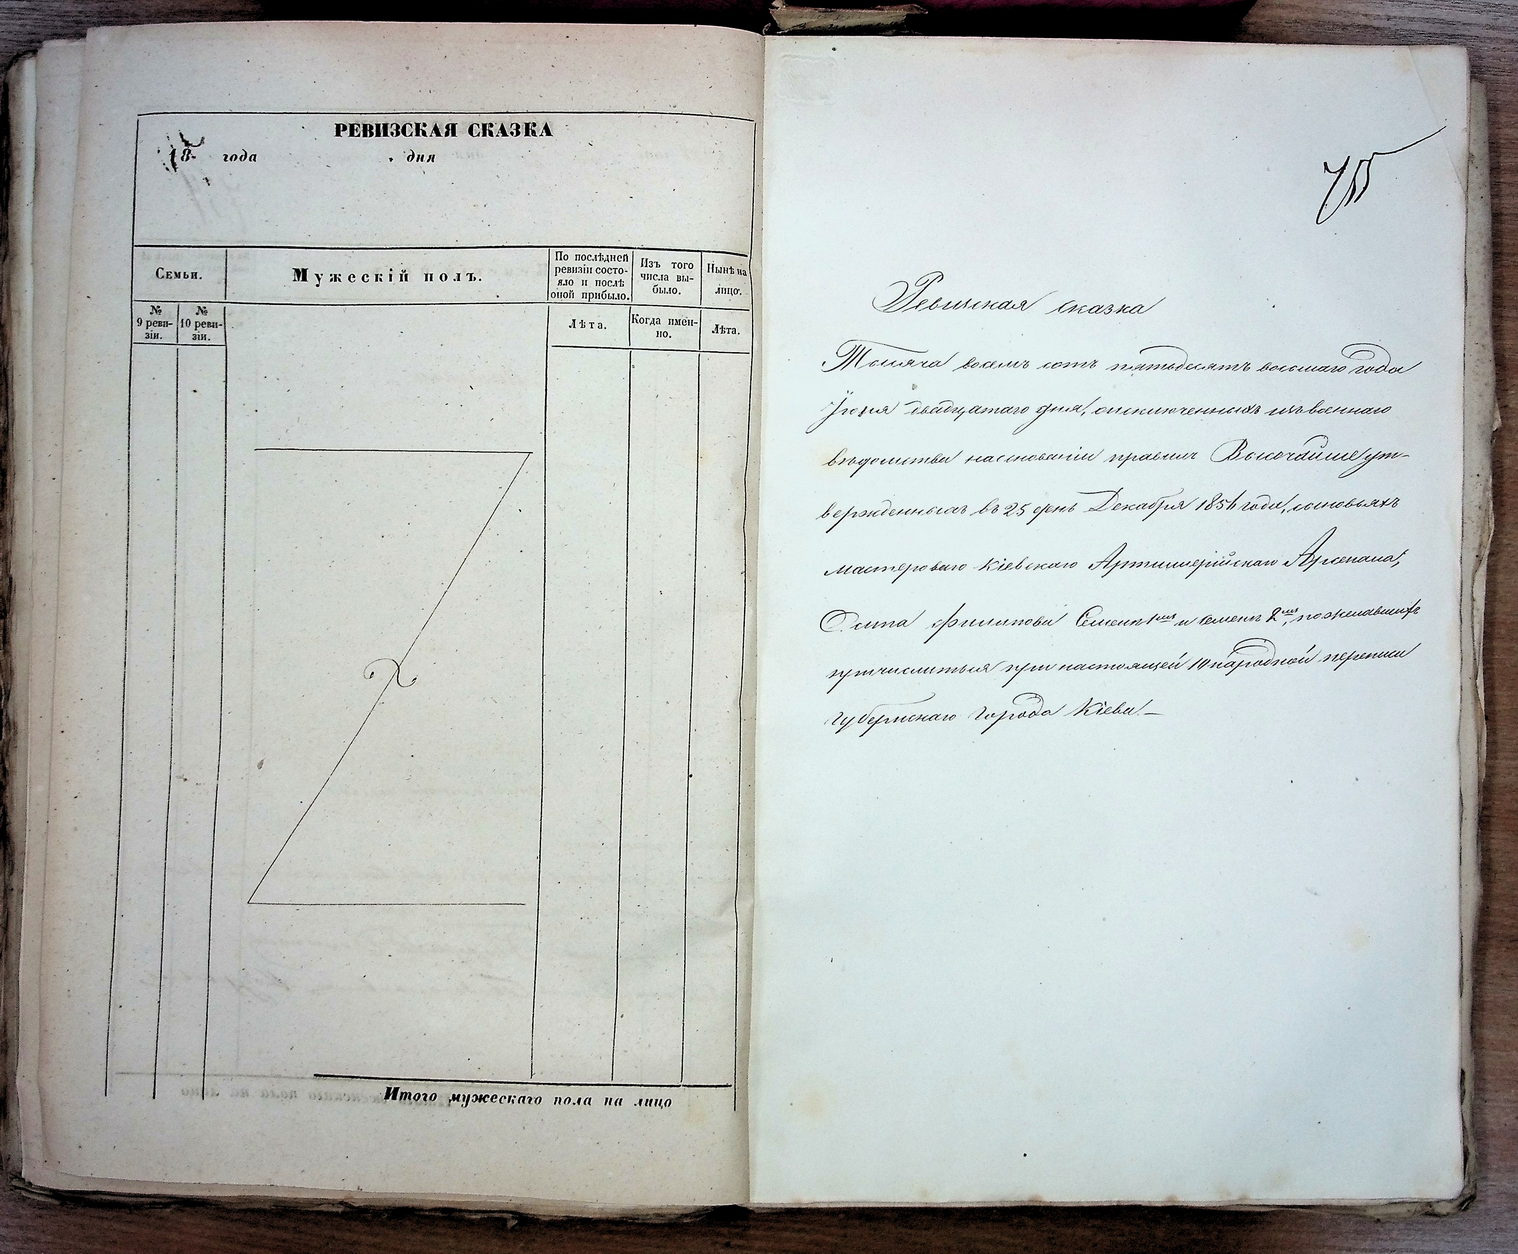 РЕВИЗСКАЯ СКАЗКА
18 года дня
Семьи.
№ 9 реви-зіи.
№ 10 реви-зіи.
Мужескій полъ.
По послѣдней ревизіи состо-яло и послѣ оной прибыло.
Лѣта.
Изъ того числа вы-было.
Когда имен-но.
Нынѣ на лицо.
Лѣта.
Итого мужескаго пола на лицо
Ревизская сказка
Тысяча восемь сотъ пятьдесятъ восьмаго года
Іюня двадцатаго дня, о исключенныхъ изъ военнаго
вѣдомства на основаніи правилъ Высочайше ут-
вержденныхъ въ 25 день Декабря 1856 года, сыновьяхъ
мастероваго Кіевскаго Артиллерійскаго Арсенала,
Филипова Семенъ 1й и Семенъ 2й, пожелавшихъ
причислиться при настоящей 10 народной переписи
губернскаго города Кіева.